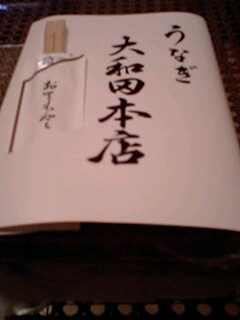 うなぎ
大和田本店
おてもと